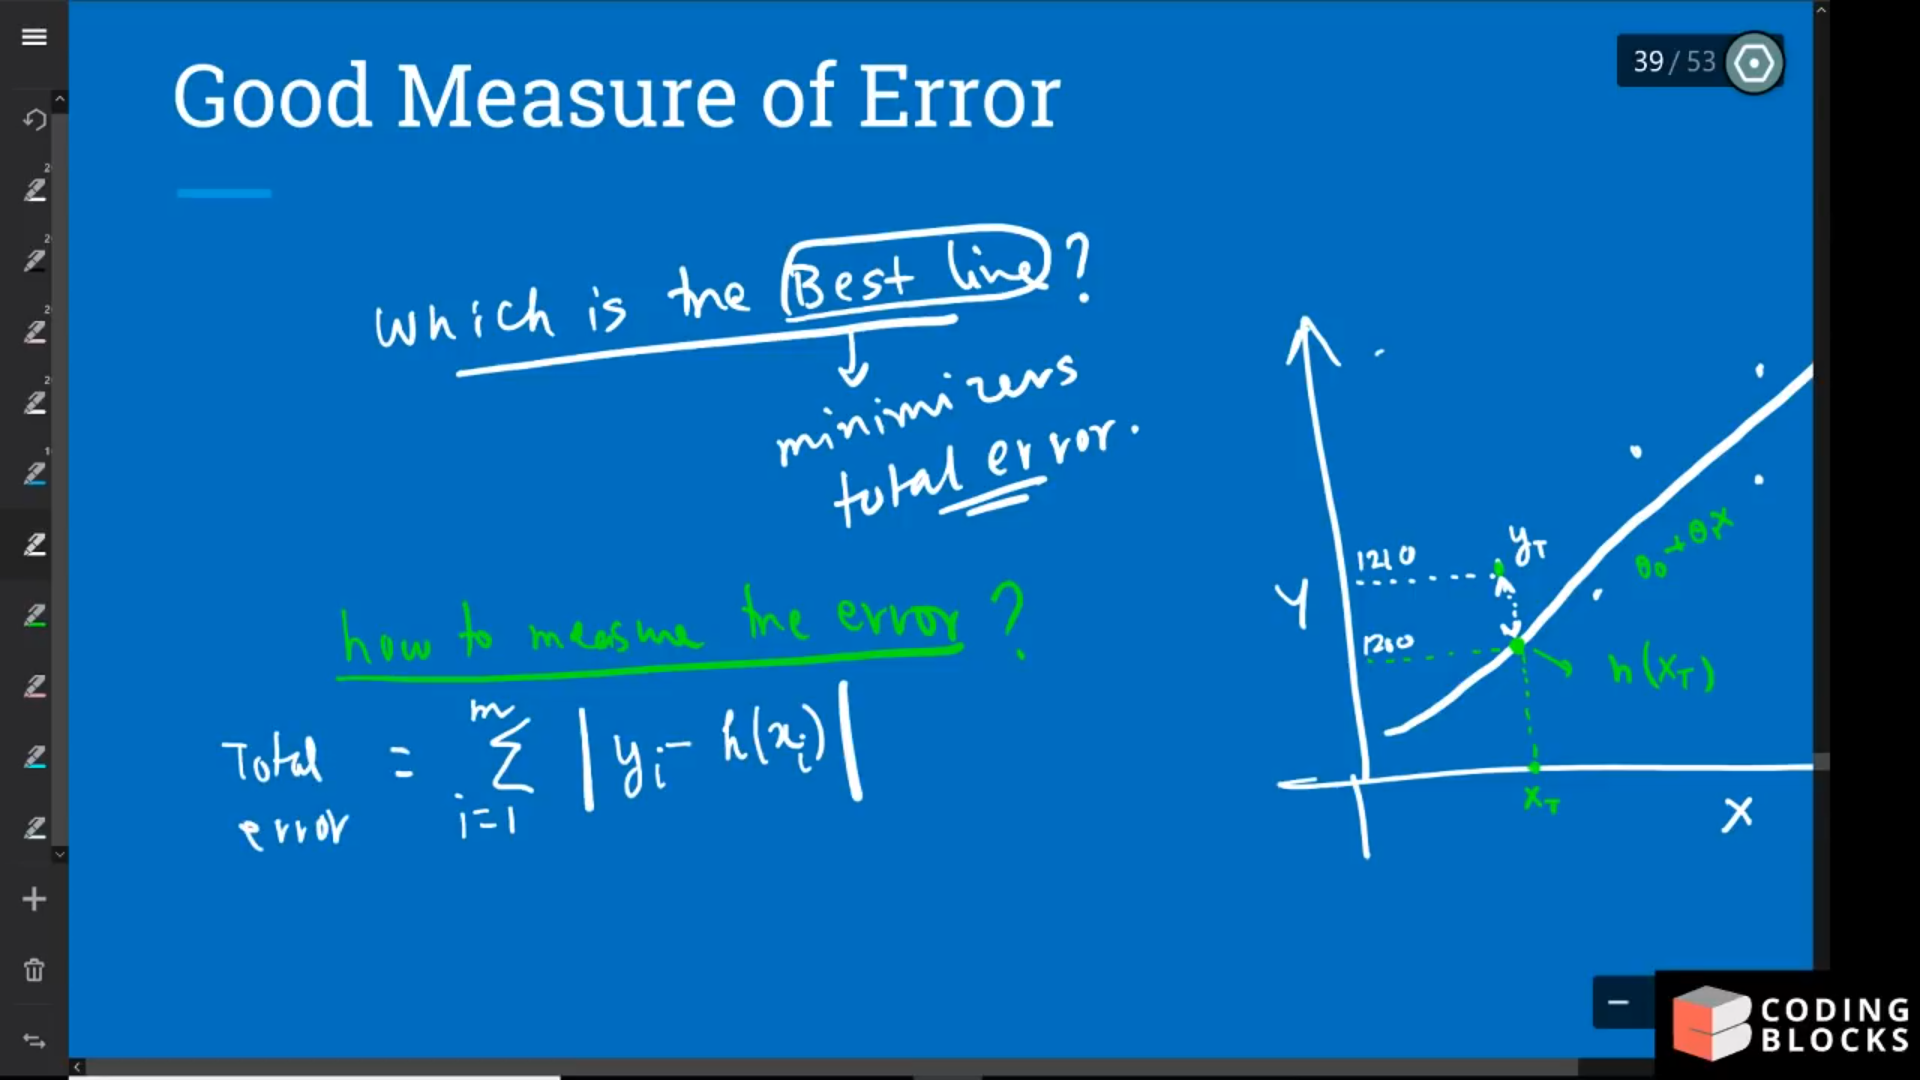 Good Measure of Error
39 / 53
Which is the Best line ?
minimizers
total error.
how to measure the error ?
Total
error
=
m
Σ
i=1
| yi - h(xi) |
Y
1210
yT
θ0 + θX
1200
h(XT)
XT
X
CODING
BLOCKS